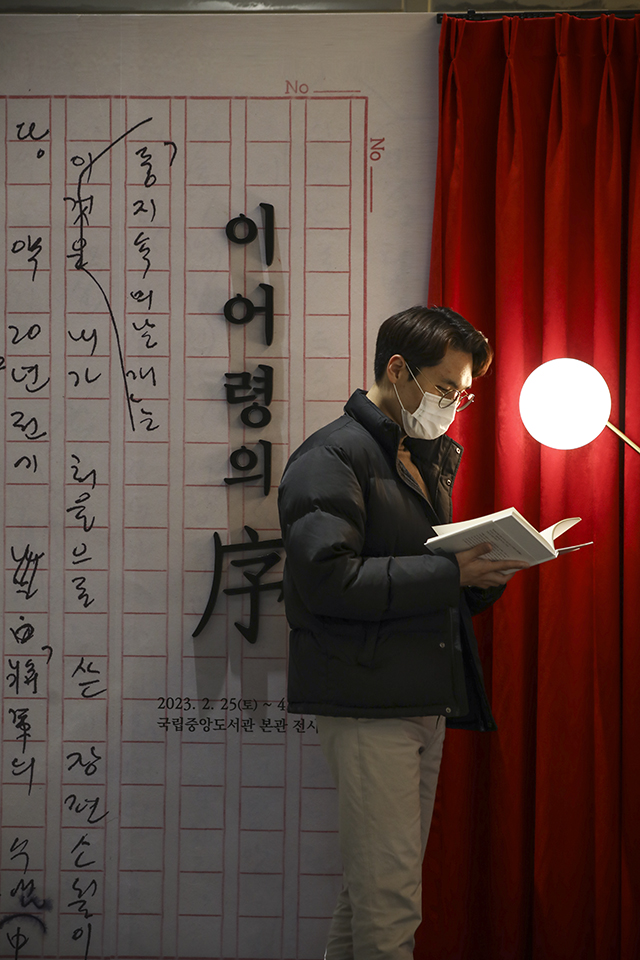 No
No
이어령의 序
2023. 2. 25(토) ~ 4
국립중앙도서관 본관 전시
둥지 속의 날개」는
이것을 내가 처음으로 쓴 장편소설이
약 20년전 將軍의 수염 (中